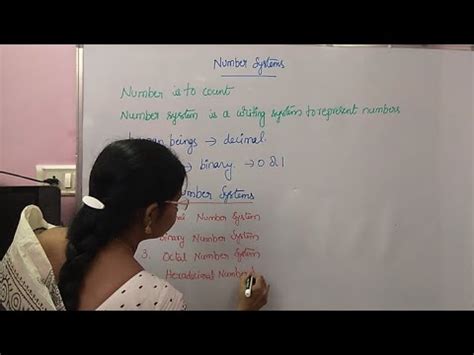 Number Systems
Number is to count
Number system is a writing system to represent numbers
beings → decimal.
→ binary. → 0 & 1
Number Systems
Number System
Binary Number System
3. Octal Number System
Hexadecimal Number